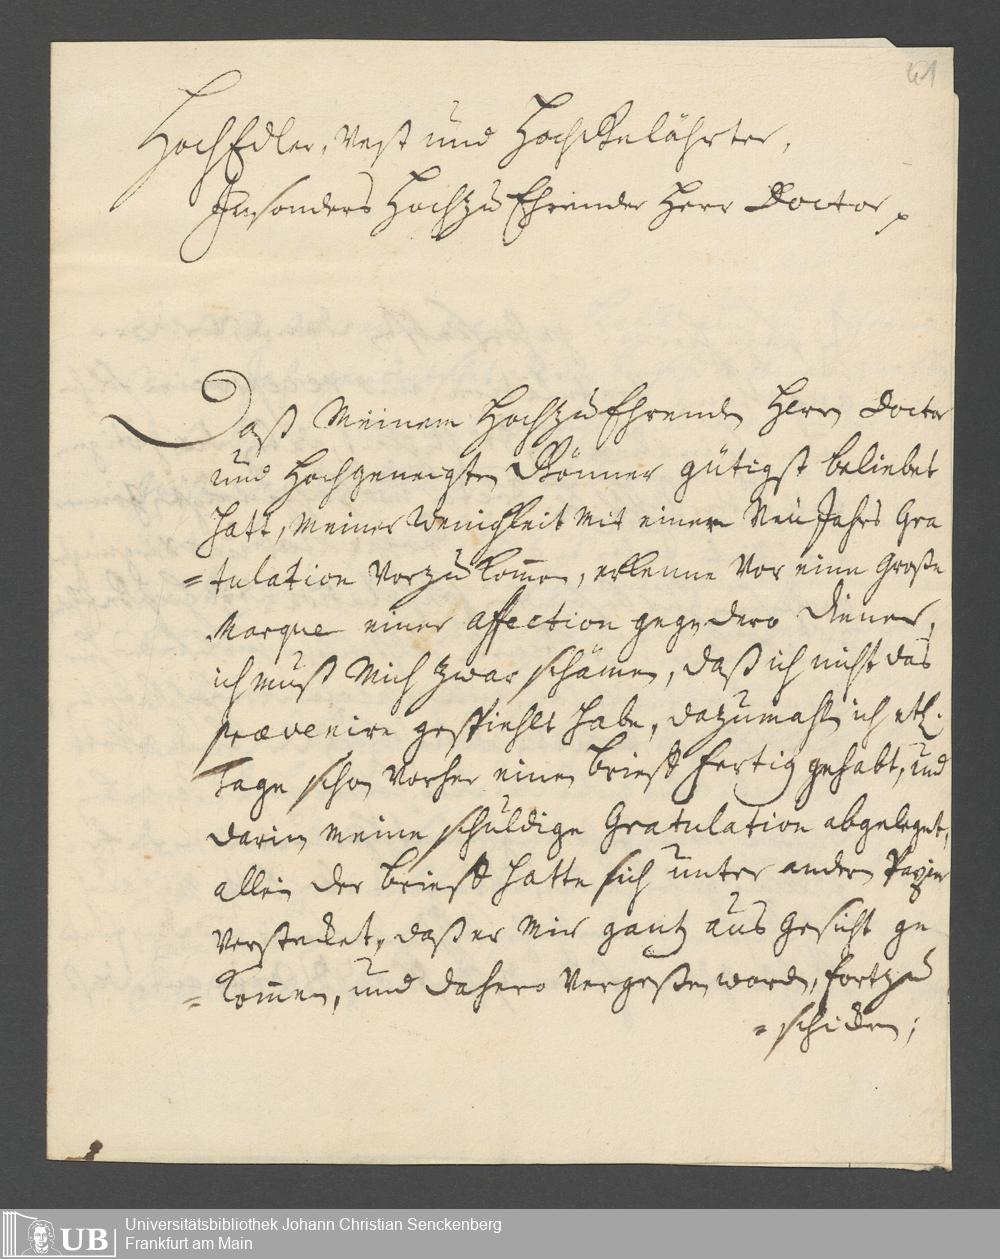 41
HochEdler, Vest und HochGelährter,
Insonders HochzuEhrender Herr Doctor
Daß Meinem HochzuEhrenden Herrn Doctor
und Hochgeneigten Gönner gütigst beliebet
hatt, meiner Wenigkeit mit einem NeuJahrs Gra
=tulation vorzukommen, erkenne vor eine Große
Marque einer affection gegen dero Diener,
ich muß mich zwar schämen, daß ich nicht das
prævenire gespiehlet habe, dazumahl ich etl.
Tage schon vorher einen brieff fertig gehabt, und
darin meine schuldige Gratulation abgeleget,
allein der brieff hatte sich unter andern Papier
verstecket, daß er mir gantz aus Gesicht ge
=kommen, und dahero vergeßen worden, fortzu
=schicken;
UB
Universitätsbibliothek Johann Christian Senckenberg
Frankfurt am Main